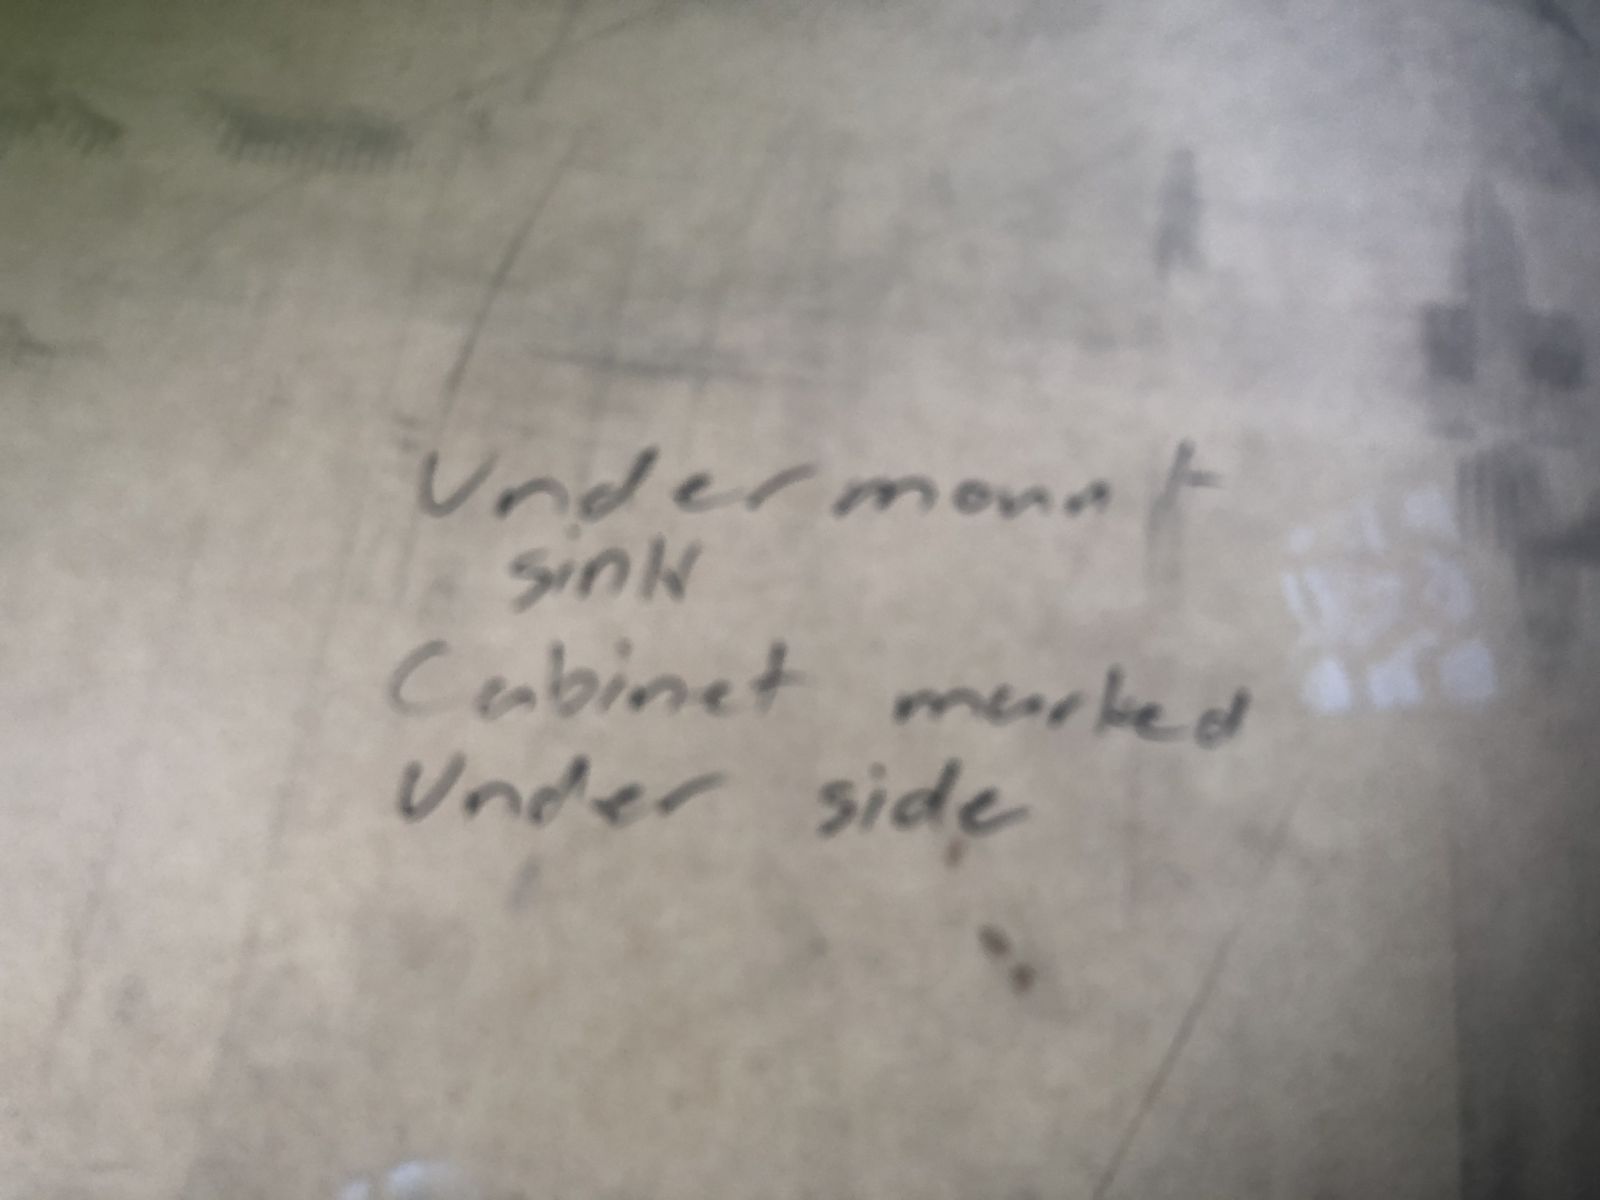 Undermount
sink
Cabinet marked
Under side